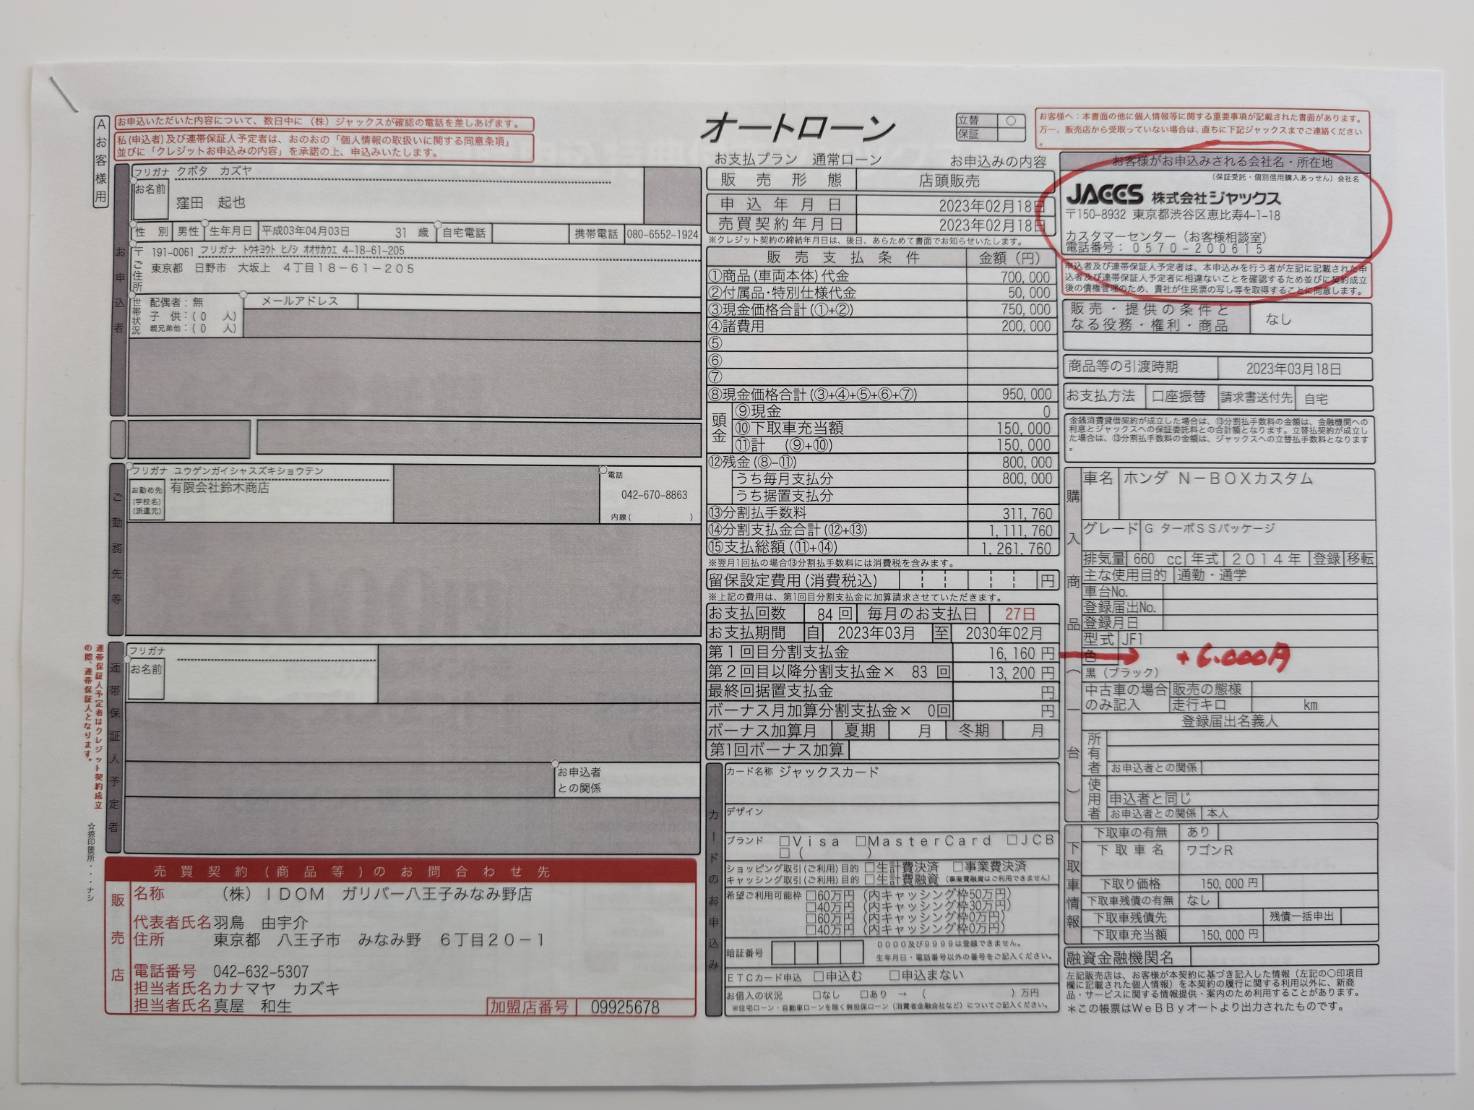 A お客様用
お申込いただいた内容について、数日中に（株）ジャックスが確認の電話を差しあげます。
私(申込者)及び連帯保証人予定者は、おのおの「個人情報の取扱いに関する同意条項」
並びに「クレジットお申込みの内容」を承諾の上、申込みいたします。
オートローン
立替 ○
保証
お客様へ：本書面の他に個人情報等に関する重要事項が記載された書面があります。
万一、販売店から受取っていない場合は、直ちに下記ジャックスまでご連絡ください
。
お申込者
フリガナ クボタ カズヤ
お名前
窪田 起也
性 別 男性 生年月日 平成03年04月03日 31 歳 自宅電話 携帯電話 080-6552-1924
〒 191-0061 フリガナ トウキヨウト ヒノシ オオサカウエ 4-18-61-205
ご住所 東京都 日野市 大坂上 4丁目18-61-205
世帯状況 配偶者：無 メールアドレス
子 供：(0 人)
親兄弟他：(0 人)
ご勤務先等
フリガナ ユウゲンガイシャスズキショウテン
お勤め先 有限会社鈴木商店
(学校名)
(派遣元)
電話
042-670-8863
内線( )
連帯保証人予定者
フリガナ
お名前
お申込者
との関係
連帯保証人予定者はクレジット契約成立
の際、連帯保証人となります。
☆捺印箇所・・・ナシ
売買契約(商品等)のお問合わせ先
販売店
名称 （株）IDOM ガリバー八王子みなみ野店
代表者氏名 羽鳥 由宇介
住所 東京都 八王子市 みなみ野 6丁目20-1
電話番号 042-632-5307
担当者氏名カナ マヤ カズキ
担当者氏名 真屋 和生
加盟店番号 09925678
お支払プラン 通常ローン お申込みの内容
販売形態 店頭販売
申込年月日 2023年02月18日
売買契約年月日 2023年02月18日
※クレジット契約の締結年月日は、後日、あらためて書面でお知らせいたします。
販売支払条件 金額（円）
①商品(車両本体)代金 700,000
②付属品・特別仕様代金 50,000
③現金価格合計(①+②) 750,000
④諸費用 200,000
⑤
⑥
⑦
⑧現金価格合計(③+④+⑤+⑥+⑦) 950,000
頭金
⑨現金 0
⑩下取車充当額 150,000
⑪計 (⑨+⑩) 150,000
⑫残金(⑧-⑪) 800,000
うち毎月支払分 800,000
うち据置支払分
⑬分割払手数料 311,760
⑭分割支払金合計(⑫+⑬) 1,111,760
⑮支払総額(⑪+⑭) 1,261,760
※翌月1回払の場合⑬分割払手数料には消費税を含みます。
留保設定費用(消費税込) 円
※上記の費用は、第1回目分割支払金に加算請求させていただきます。
お支払回数 84回 毎月のお支払日 27日
お支払期間 自 2023年03月 至 2030年02月
第1回目分割支払金 16,160円
第2回目以降分割支払金× 83 回 13,200円
最終回据置支払金 円
ボーナス月加算分割支払金× 0回 円
ボーナス加算月 夏期 月 冬期 月
第1回ボーナス加算
カードのお申込み
カード名称 ジャックスカード
デザイン
ブランド □Visa □MasterCard □JCB
□( )
ショッピング取引(ご利用)目的 □生計費決済 □事業費決済
キャッシング取引(ご利用)目的 □生計費融資 (事業費融資はご利用できません)
希望ご利用可能枠 □60万円 (内キャッシング枠50万円)
□40万円 (内キャッシング枠30万円)
□60万円 (内キャッシング枠0万円)
□40万円 (内キャッシング枠0万円)
暗証番号 0000及び9999は登録できません。
生年月日・電話番号以外の番号をご記入ください。
ETCカード申込 □申込む □申込まない
お借入の状況 □なし □あり → ( )万円
※住宅ローン・自動車ローンを除く無担保ローン(消費者金融会社など)についてご記入ください。
お客様がお申込みされる会社名・所在地
(保証受託・個別信用購入あっせん)会社名
JACCS 株式会社ジャックス
〒150-8932 東京都渋谷区恵比寿4-1-18
カスタマーセンター（お客様相談室）
電話番号：0570-200615
申込者及び連帯保証人予定者は、本申込みを行う者が左記に記載された申
込者及び連帯保証人予定者に相違ないことを確認するため並びに契約成立
後の債権管理のため、貴社が住民票の写し等を取得することに同意します。
販売・提供の条件と
なる役務・権利・商品 なし
商品等の引渡時期 2023年03月18日
お支払方法 口座振替 請求書送付先 自宅
金銭消費貸借契約が成立した場合は、⑬分割払手数料の金額は、金融機関への
利息とジャックスへの保証委託料との合計額となります。立替払契約が成立し
た場合は、⑬分割払手数料の金額は、ジャックスへの立替払手数料となります
。
購入商品(一台)
車名 ホンダ N-BOXカスタム
グレード G ターボSSパッケージ
排気量 660 cc 年式 2014年 登録 移転
主な使用目的 通勤・通学
車台No.
登録届出No.
登録月日
型式 JF1
色
+6.000円
黒(ブラック)
中古車の場合 販売の態様
のみ記入 走行キロ km
登録届出名義人
所有者
お申込者との関係
使用者 申込者と同じ
お申込者との関係 本人
下取車情報
下取車の有無 あり
下取車名 ワゴンR
下取り価格 150,000円
下取車残債の有無 なし
下取車残債先 残債一括申出
下取車充当額 150,000円
融資金融機関名
左記販売店は、お客様が本契約に基づき記入した情報(左記の○印項目
欄に記載された個人情報)を本契約の履行に関する利用以外に、新商
品・サービスに関する情報提供・案内のため利用することがあります。
＊この帳票はWeBByオートより出力されたものです。